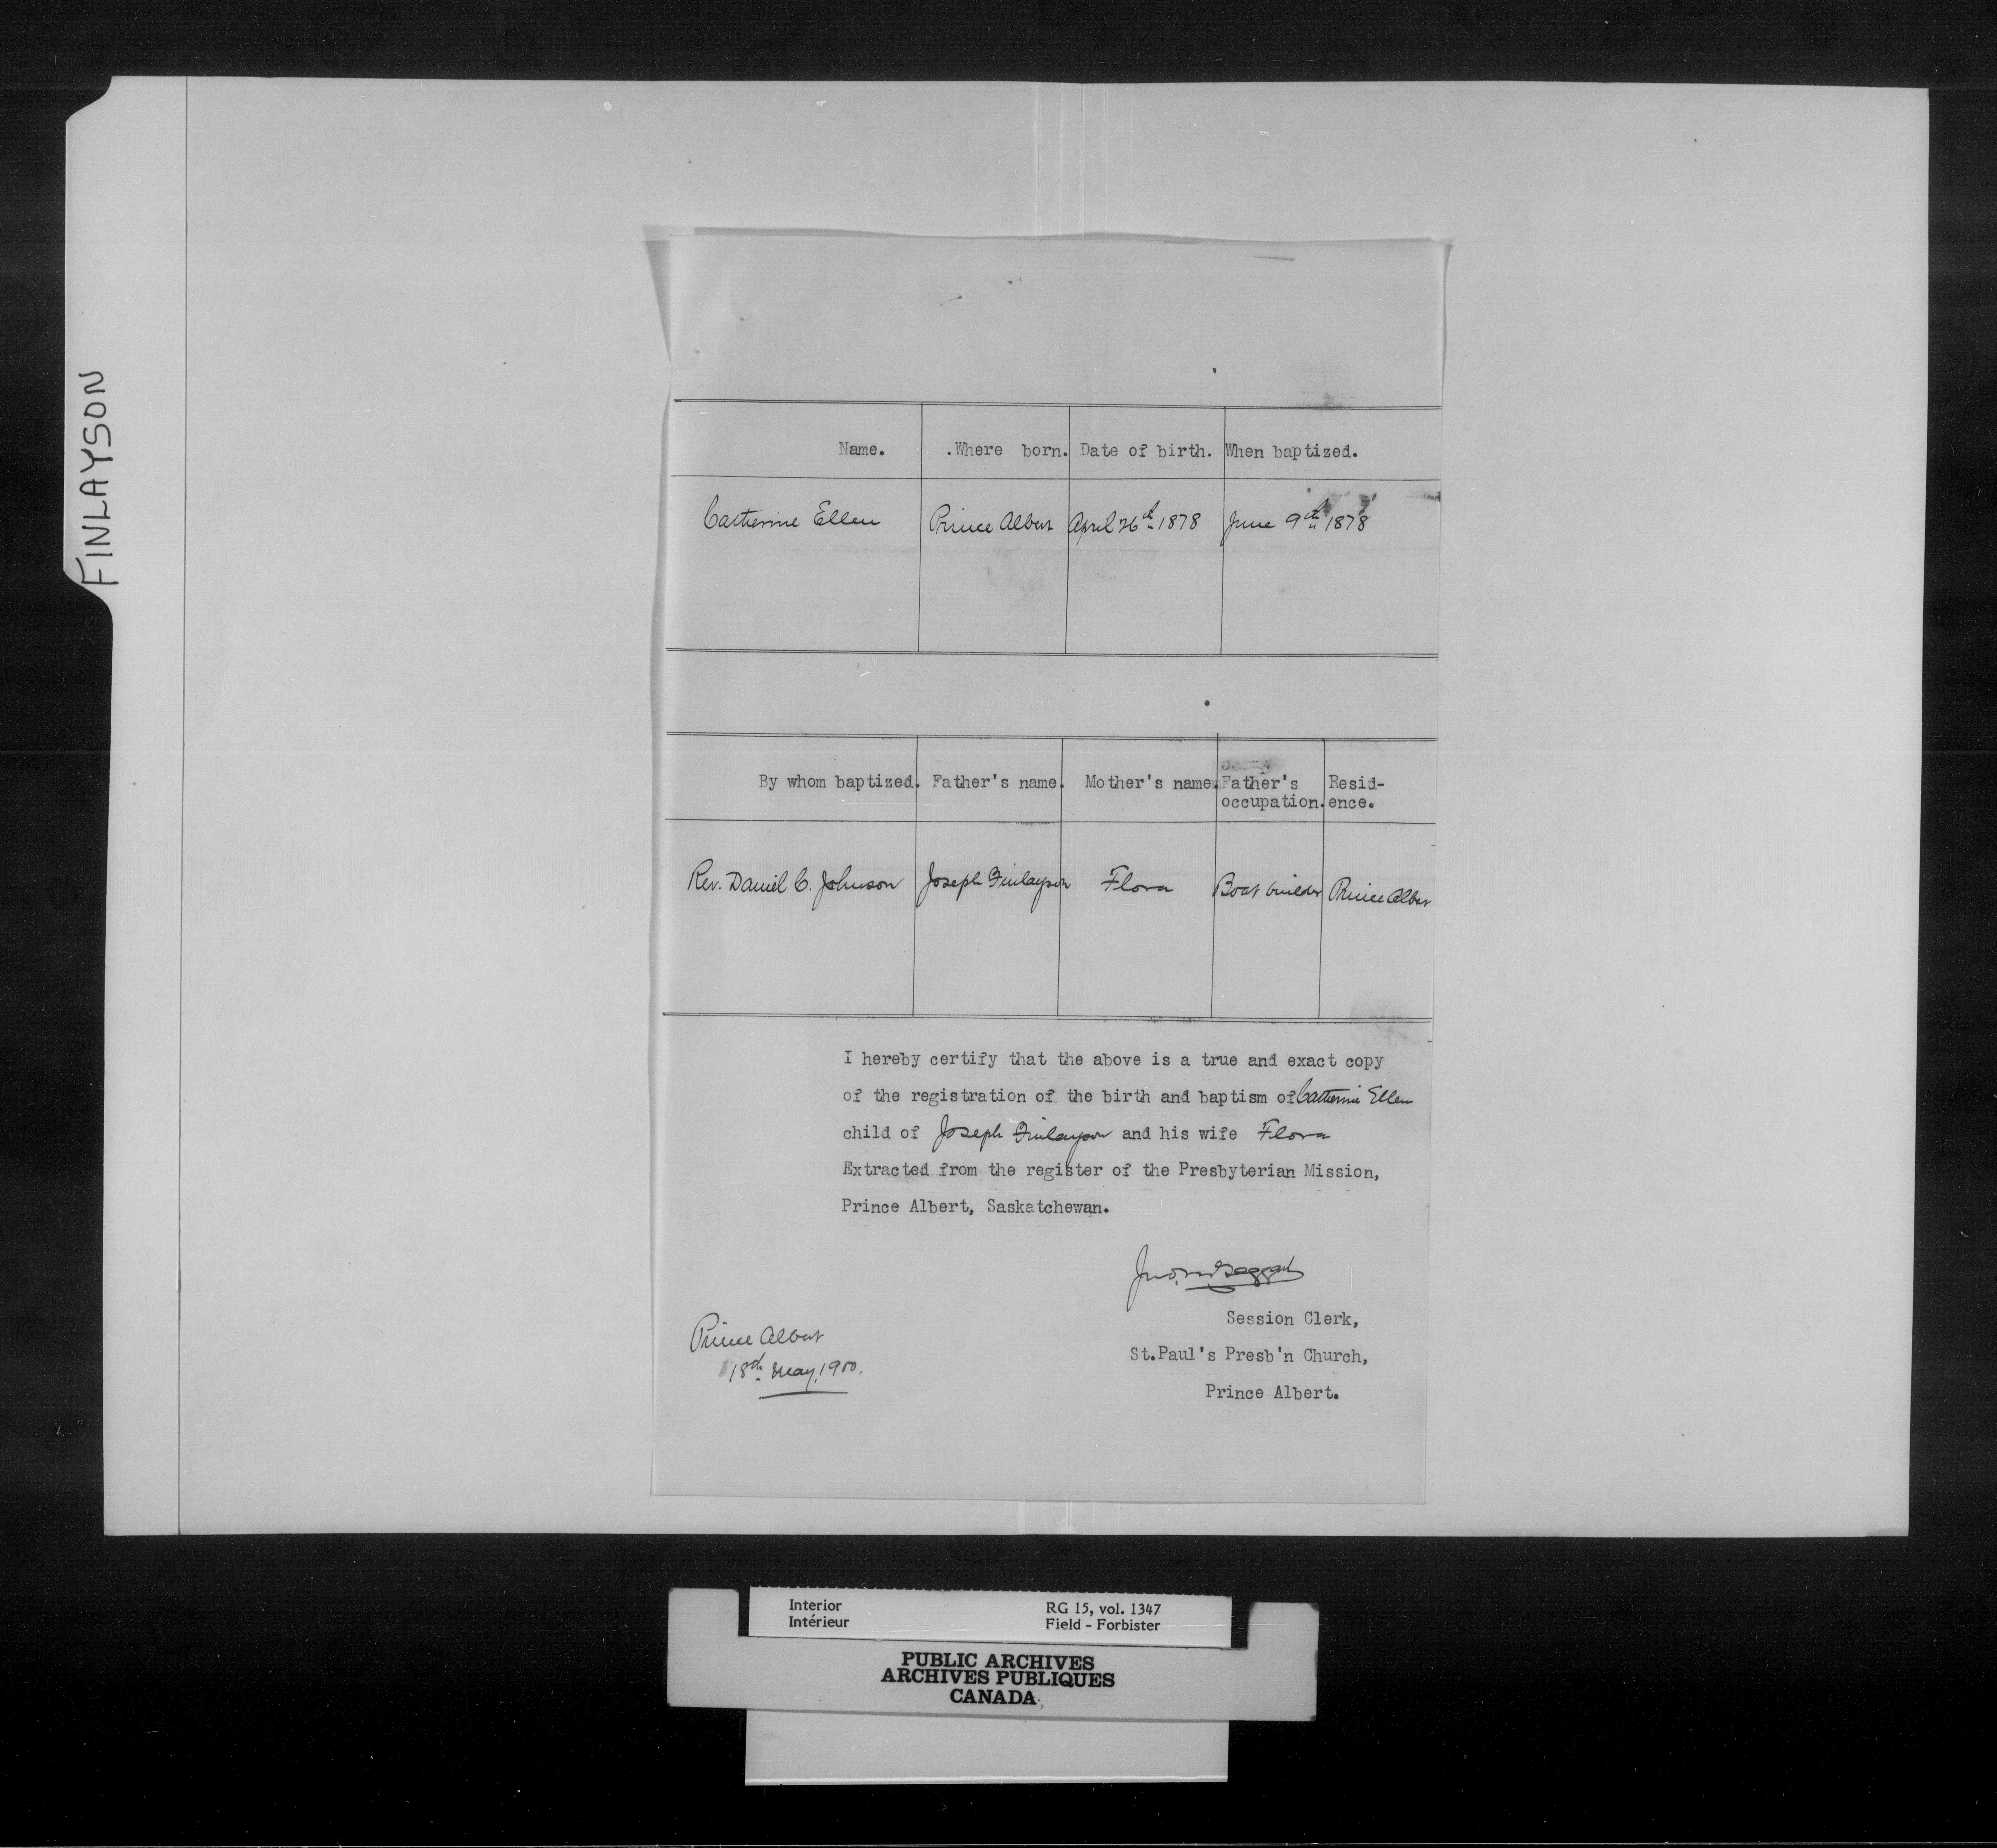 FINLAYSON
Name. .Where born. Date of birth. When baptized.
Catherine Ellen Prince Albert April 26th 1878 June 9th 1878
By whom baptized. Father's name. Mother's name. Father's occupation. Resid-ence.
Rev. Daniel C. Johnson Joseph Finlayson Flora Boat builder Prince Albert
I hereby certify that the above is a true and exact copy
of the registration of the birth and baptism of Catherine Ellen
child of Joseph Finlayson and his wife Flora
Extracted from the register of the Presbyterian Mission,
Prince Albert, Saskatchewan.
Session Clerk,
St.Paul's Presb'n Church,
Prince Albert.
Prince Albert
18th May, 1900.
Interior RG 15, vol. 1347
Intérieur Field - Forbister
PUBLIC ARCHIVES
ARCHIVES PUBLIQUES
CANADA